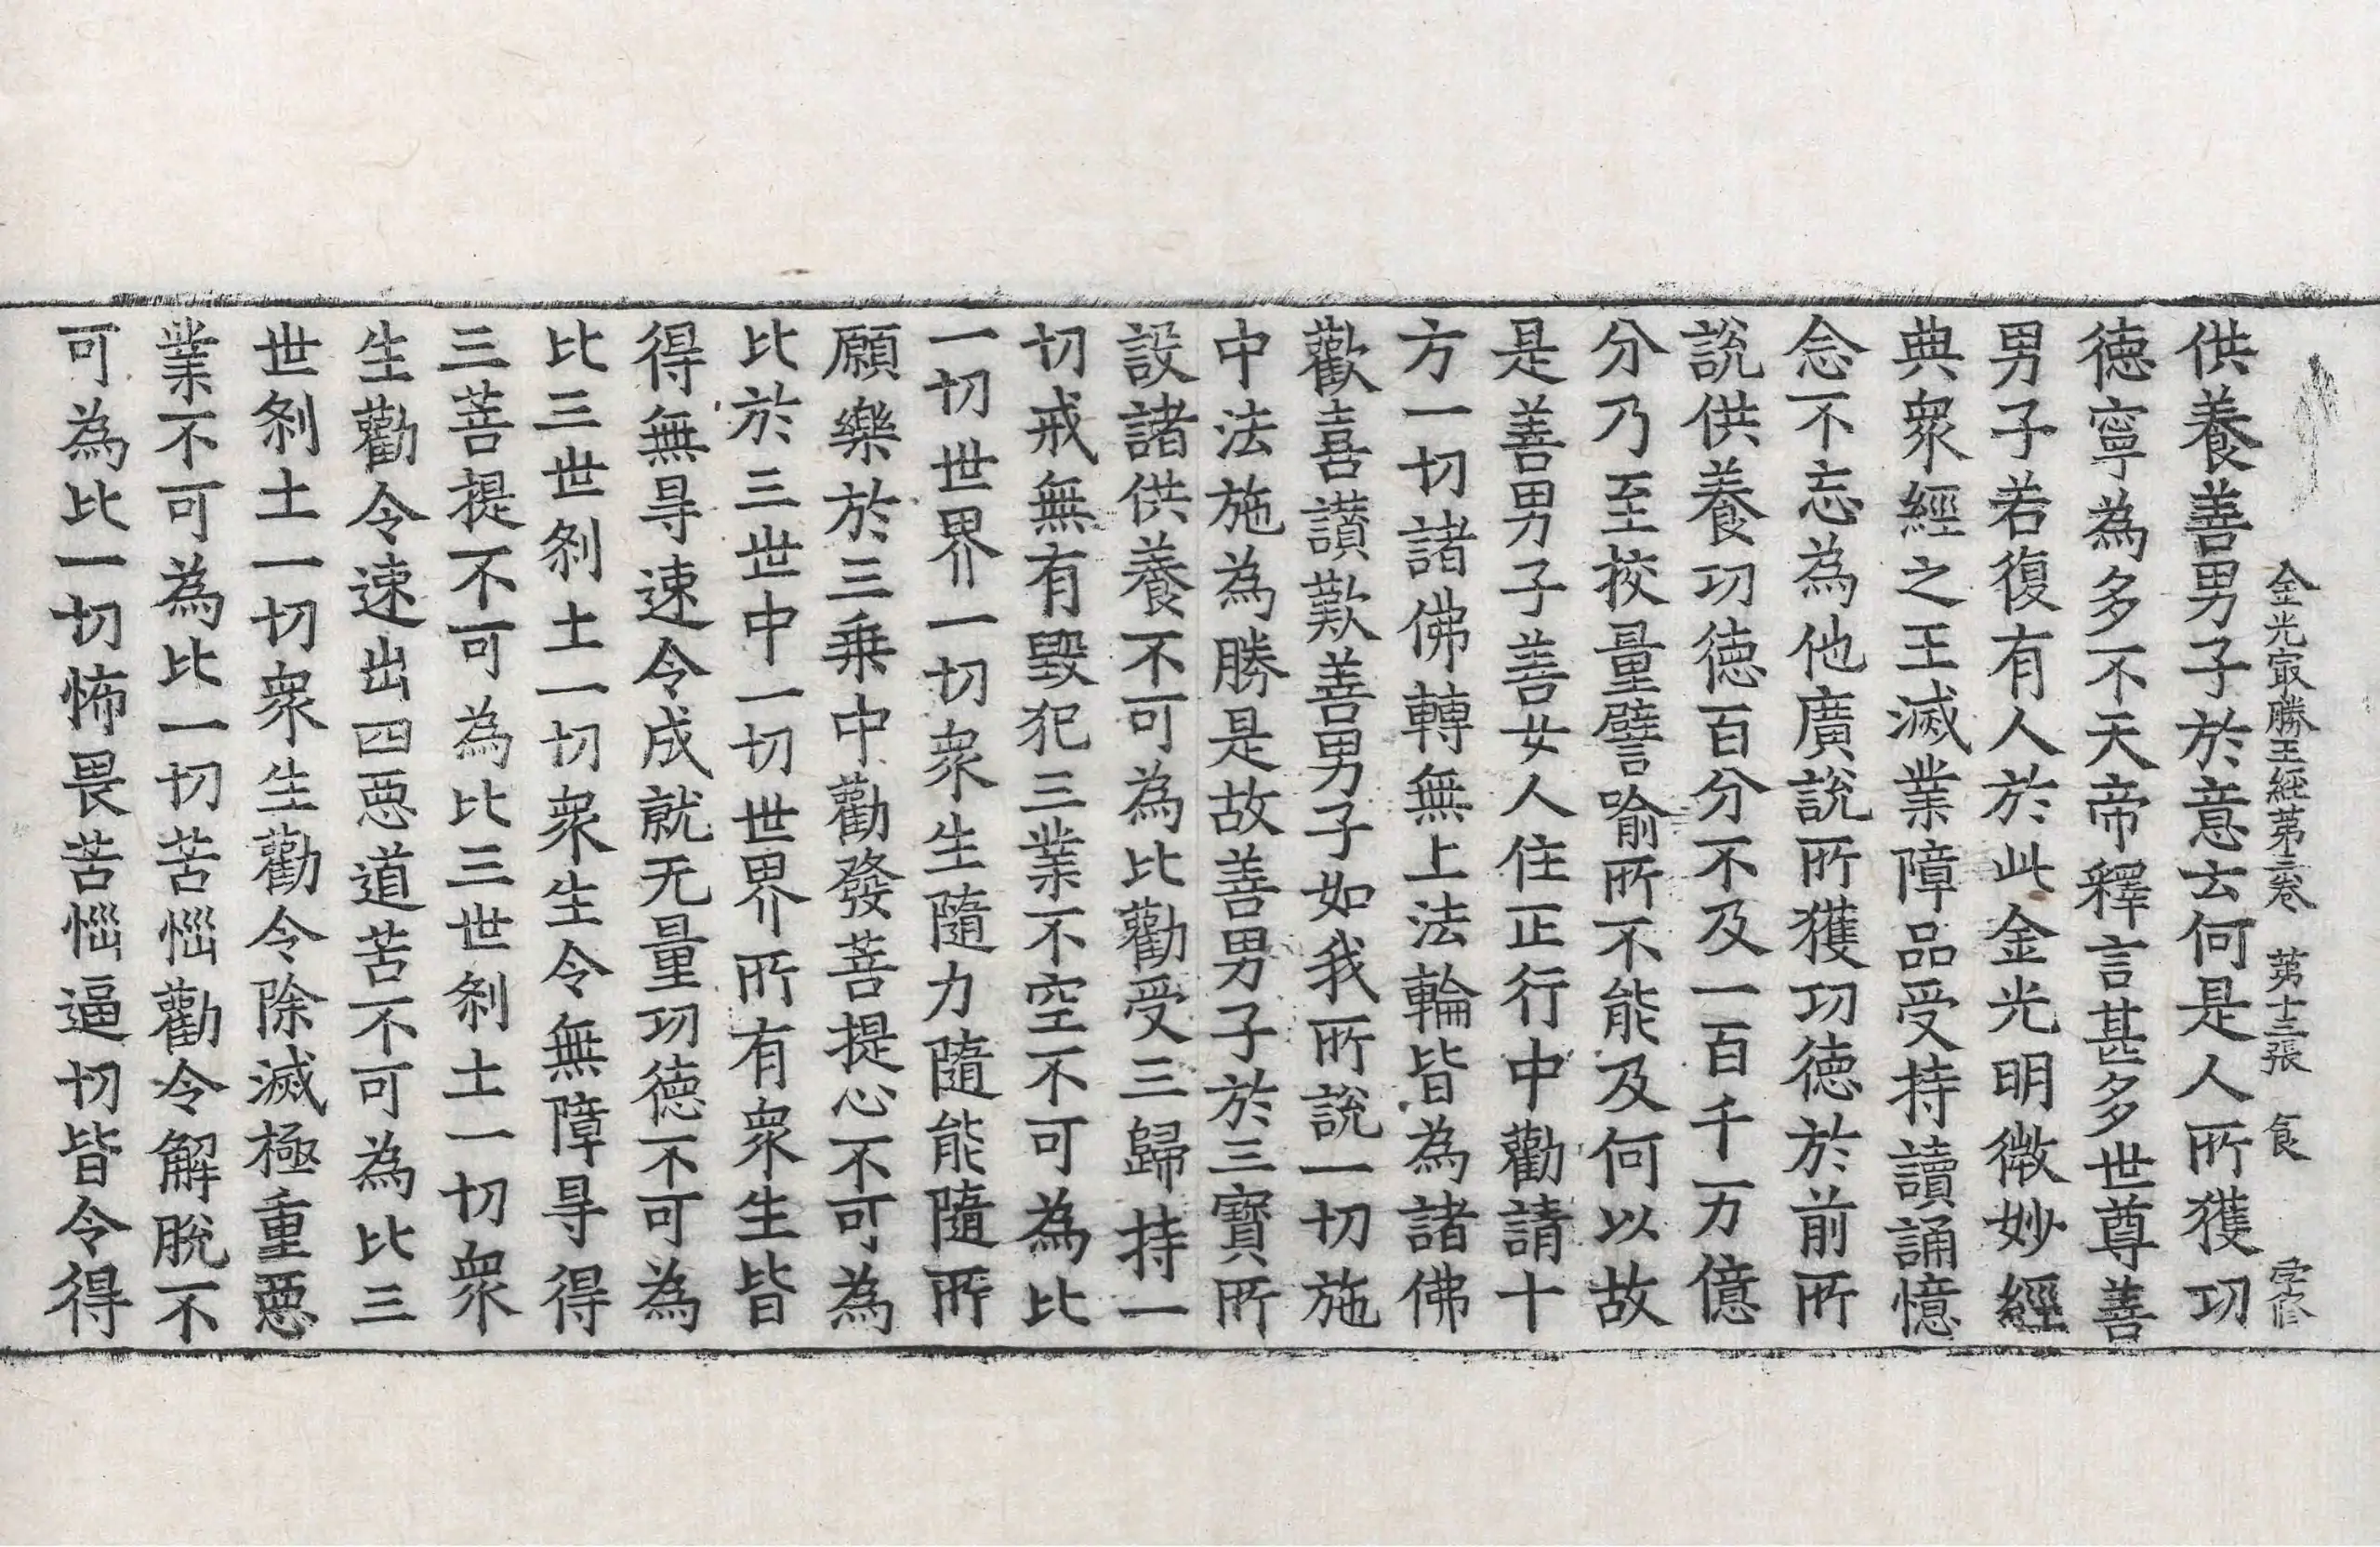 金光㝡勝王經苐三卷　苐十三張　食
供養善男子於意去何是人所獲㓛
德寧為多不天帝釋言甚多世尊善
男子若復有人於此金光明微妙經
典衆經之王滅業障品受持讀誦憶
念不忘為他廣說所獲㓛德於前所
說供養㓛德百分不及一百千万億
分乃至挍量譬喻所不能及何以故
是善男子善女人住正行中勸請十
方一切諸佛轉無上法輪皆為諸佛
歡喜讃歎善男子如我所說一切施
中法施為勝是故善男子於三寶所
設諸供養不可為比勸受三歸持一
切戒無有毀犯三業不空不可為比
一切世界一切衆生隨力隨能隨所
願樂於三乗中勸發菩提心不可為
比於三世中一切世界所有衆生皆
得無㝵速令成就无量㓛德不可為
比三世刹土一切衆生令無障㝵得
三菩提不可為比三世刹土一切衆
生勸令速出四惡道苦不可為比三
世刹土一切衆生勸令除滅極重惡
業不可為比一切苦惱勸令解脫不
可為比一切怖畏苦惱逼切皆令得